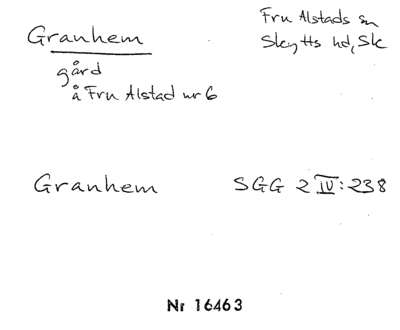 Granhem
Fru Alstads sn
Skytts hd, Sk
gård
å Fru Alstad nr 6
Granhem
SGG 2 IV: 238
Nr 16463